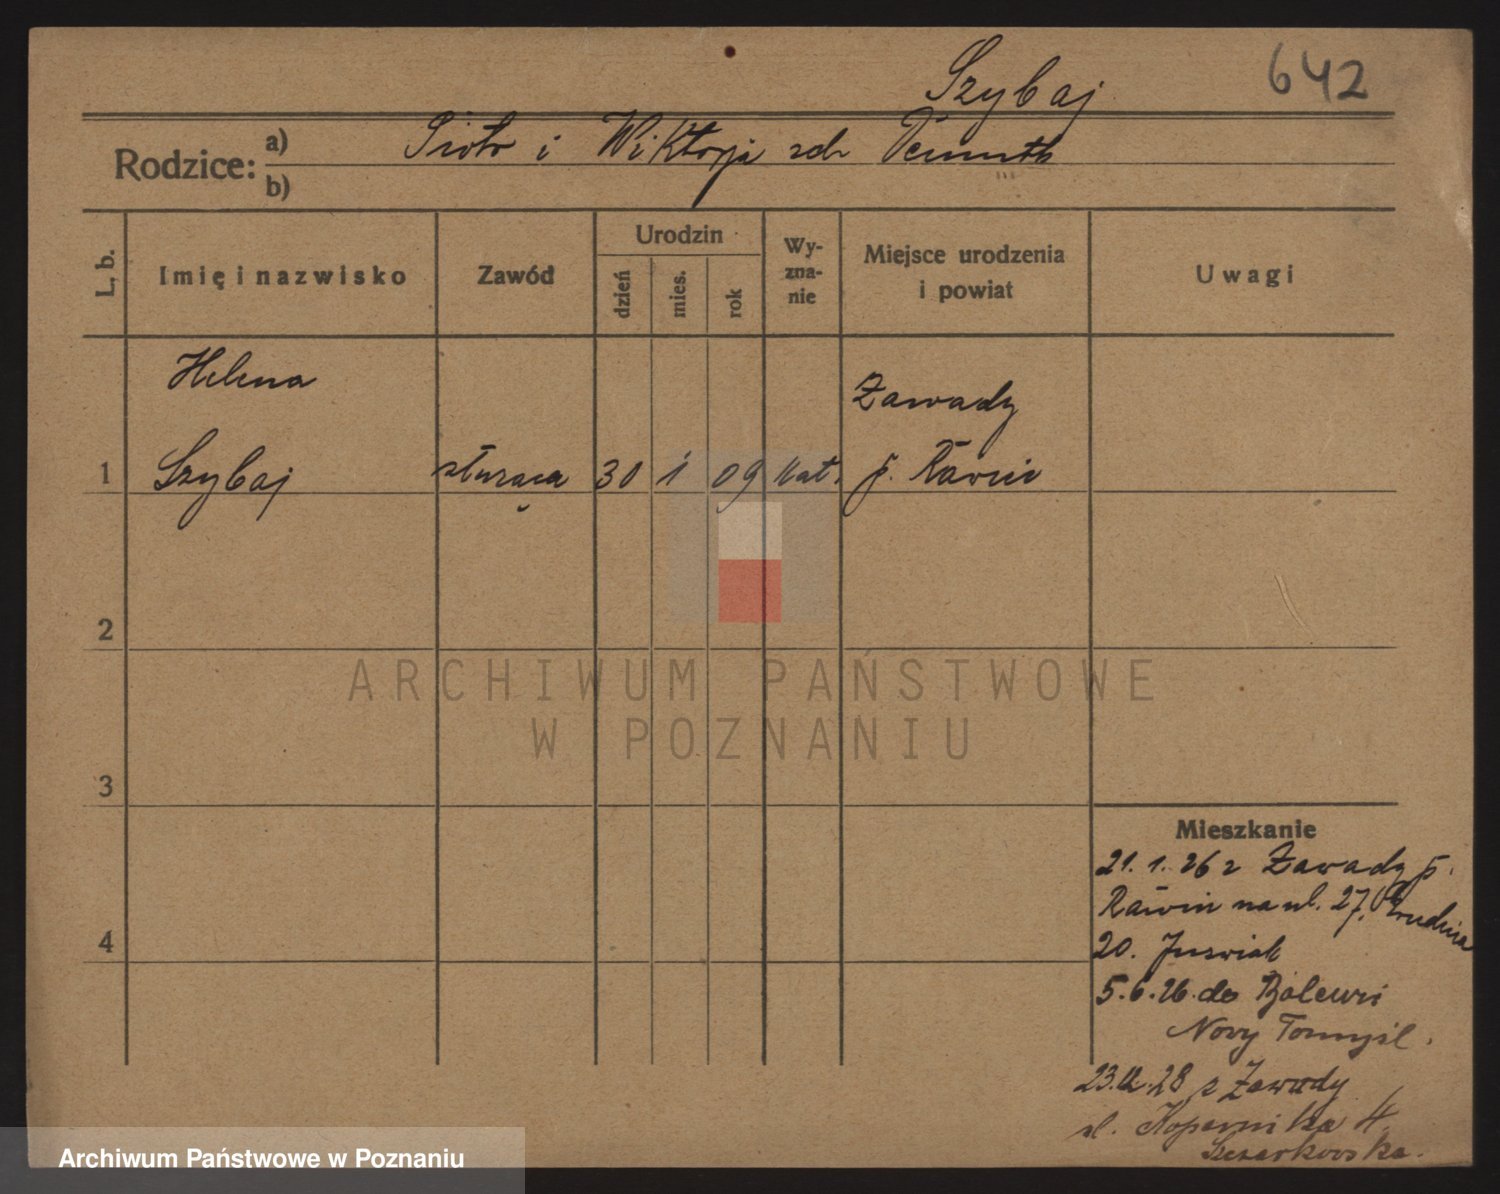 Szybaj
642
Rodzice: a) Piotr i Wiktorja zd.
b)
L. b.
Imię i nazwisko
Zawód
Urodzin
dzień
mies.
rok
Wy-
zna-
nie
Miejsce urodzenia
i powiat
Uwagi
Helena
Zawady
1 Szybaj służąca 30 1 09 kat. p. Rawicz
2
3
4
Mieszkanie
21. 1. 26 z Zawady p.
Rawicz na ul. 27. Grudnia
20.
5.6.26. do
Nowy Tomyśl.
28 z Zawady
ul. Kopernika 4.
ARCHIWUM PAŃSTWOWE
W POZNANIU
Archiwum Państwowe w Poznaniu